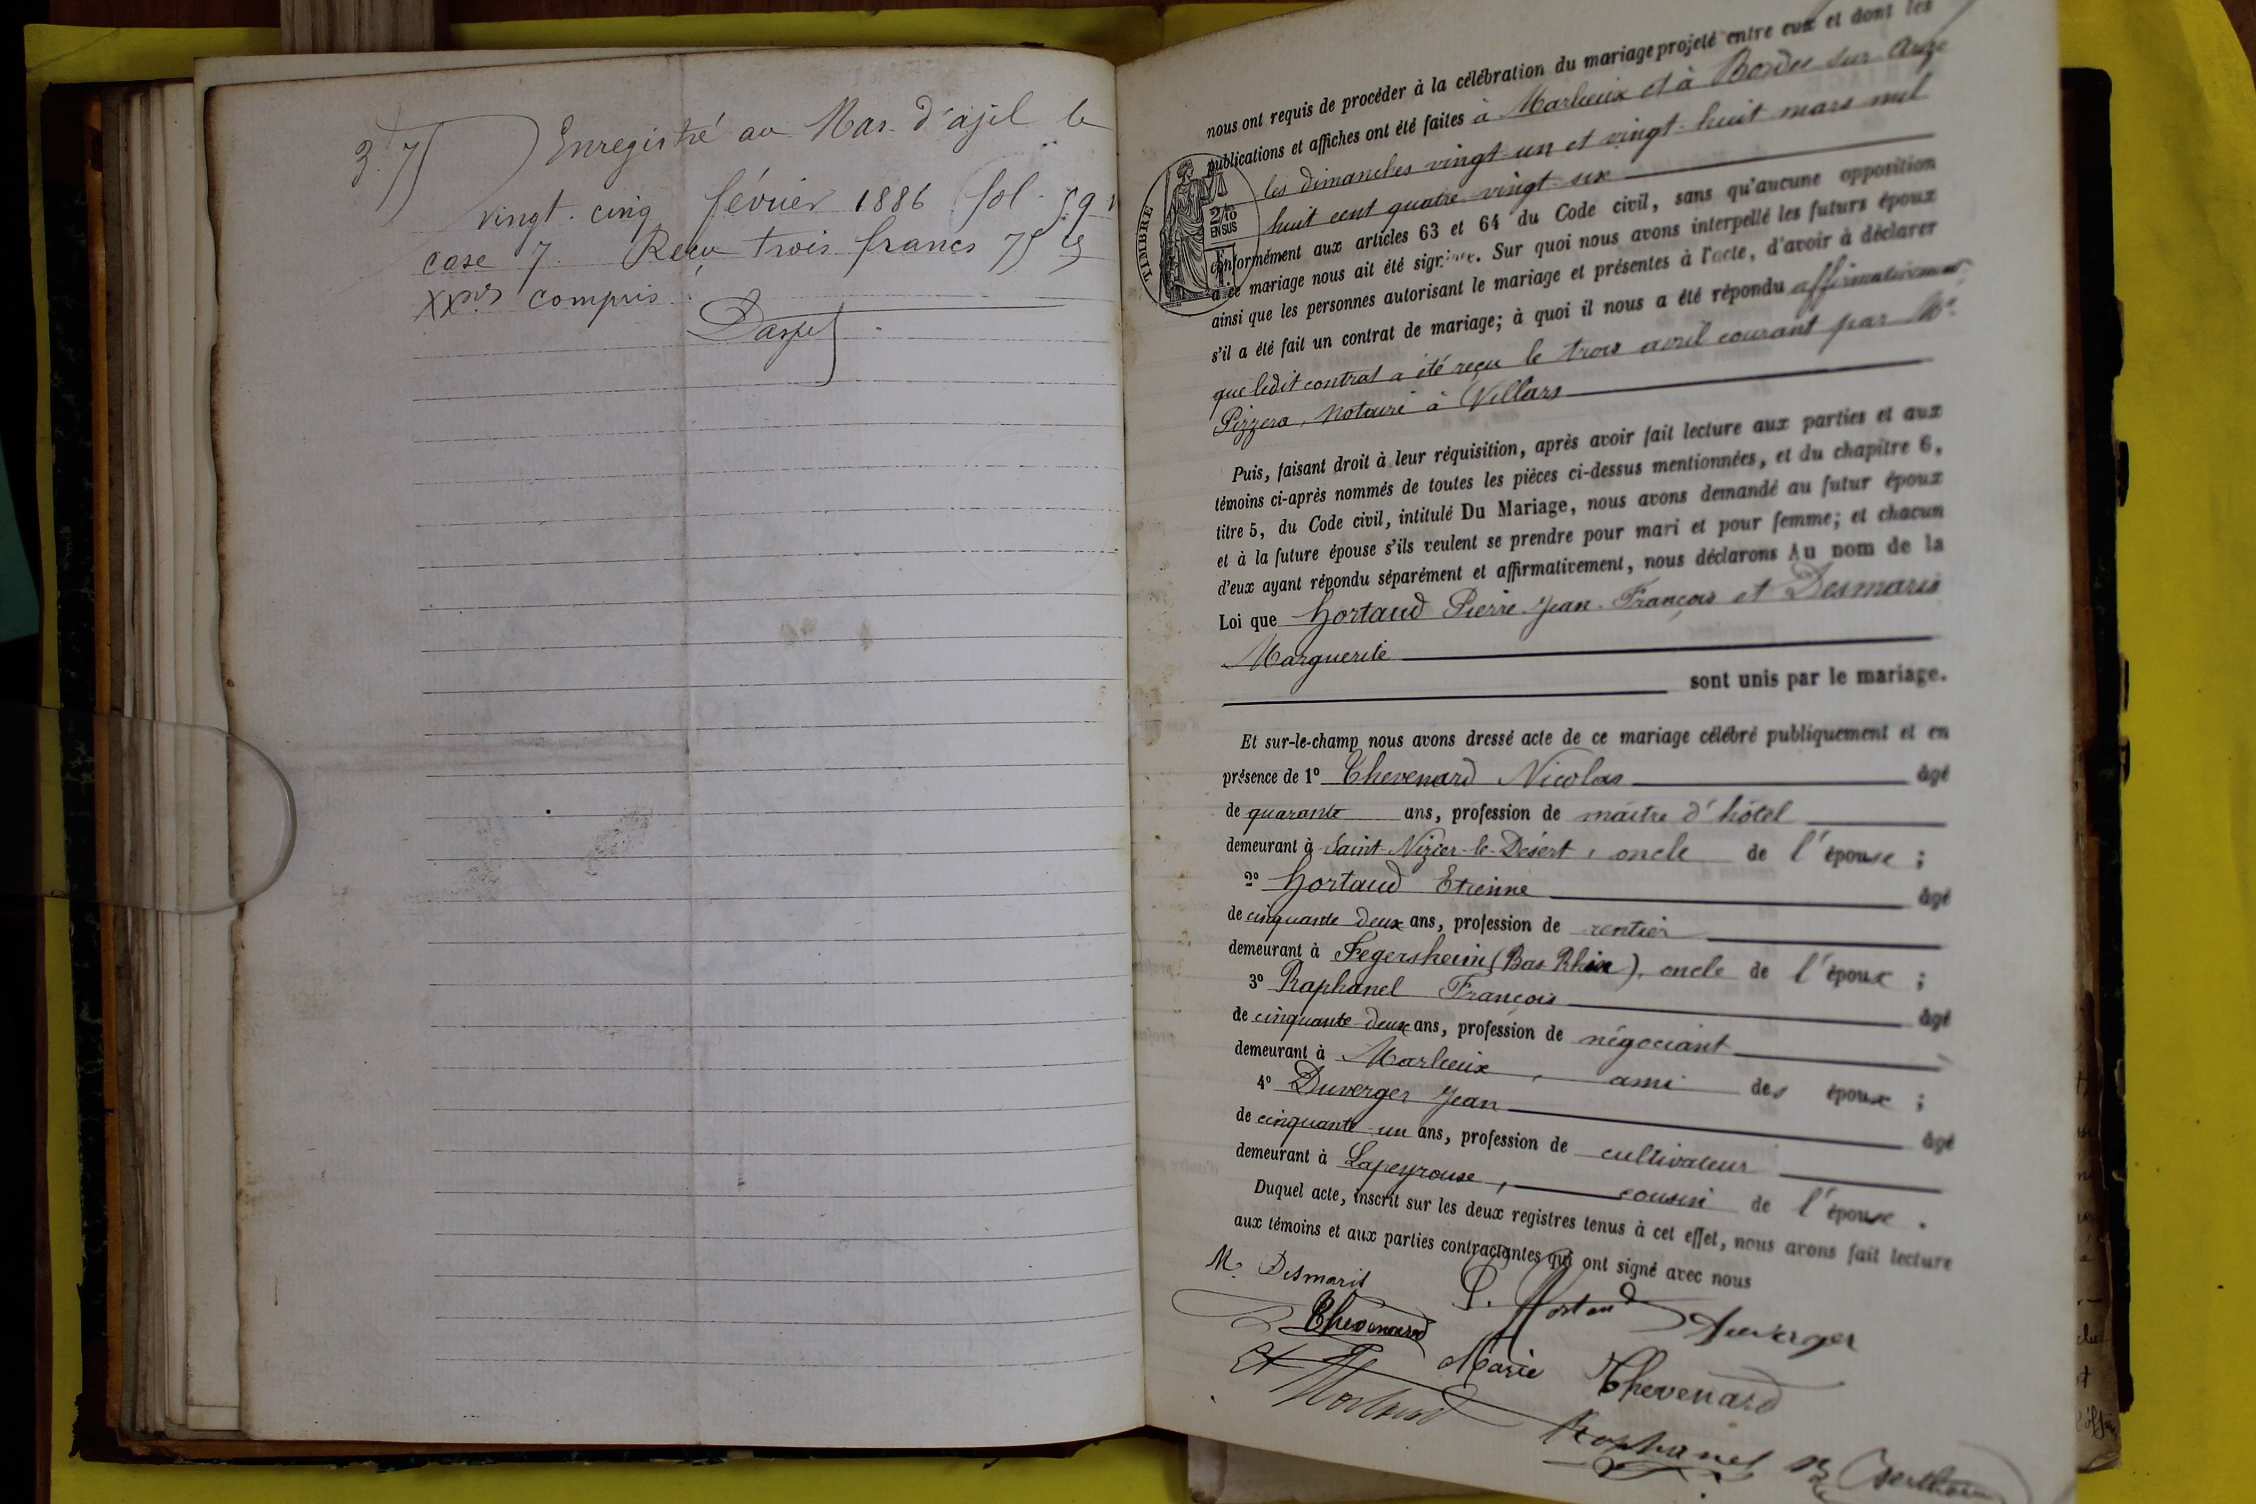 3.75
Enregistré au Mas-d'azil le
vingt-cinq février 1886 fol. 59
case 7. Reçu trois francs 75 cs
compris.
nous ont requis de procéder à la célébration du mariage projeté entre eux et dont les
publications et affiches ont été faites à Marlieux et à Bordes sur Arize
les dimanches vingt-un et vingt-huit mars mil
huit cent quatre-vingt-six
conformément aux articles 63 et 64 du Code civil, sans qu'aucune opposition
à ce mariage nous ait été signifiée. Sur quoi nous avons interpellé les futurs époux
ainsi que les personnes autorisant le mariage et présentes à l'acte, d'avoir à déclarer
s'il a été fait un contrat de mariage; à quoi il nous a été répondu affirmativement
que ledit contrat a été reçu le trois avril courant par Me
Pizzera, notaire à Villars
TIMBRE
2/10
EN SUS
Puis, faisant droit à leur réquisition, après avoir fait lecture aux parties et aux
témoins ci-après nommés de toutes les pièces ci-dessus mentionnées, et du chapitre 6,
titre 5, du Code civil, intitulé Du Mariage, nous avons demandé au futur époux
et à la future épouse s'ils veulent se prendre pour mari et pour femme; et chacun
d'eux ayant répondu séparément et affirmativement, nous déclarons Au nom de la
Loi que Hortaud Pierre Jean-François et Desmaris
Marguerite
sont unis par le mariage.
Et sur-le-champ nous avons dressé acte de ce mariage célébré publiquement et en
présence de 1° Chevenard Nicolas âgé
de quarante ans, profession de maître d'hôtel
demeurant à Saint-Nizier-le-Désert, oncle de l'épouse;
2° Hortaud Etienne âgé
de cinquante deux ans, profession de rentier
demeurant à Fegersheim (Bas Rhin), oncle de l'époux;
3° Raphanel François âgé
de cinquante-deux ans, profession de négociant
demeurant à Marlieux, ami des époux;
4° Duverger Jean âgé
de cinquante-un ans, profession de cultivateur
demeurant à Lapeyrouse, cousin de l'épouse.
Duquel acte, inscrit sur les deux registres tenus à cet effet, nous avons fait lecture
aux témoins et aux parties contractantes qui ont signé avec nous
M. Desmaris P. Hortaud
Chevenard Duverger
Marie Chevenard
Et Hortaud
Raphanel